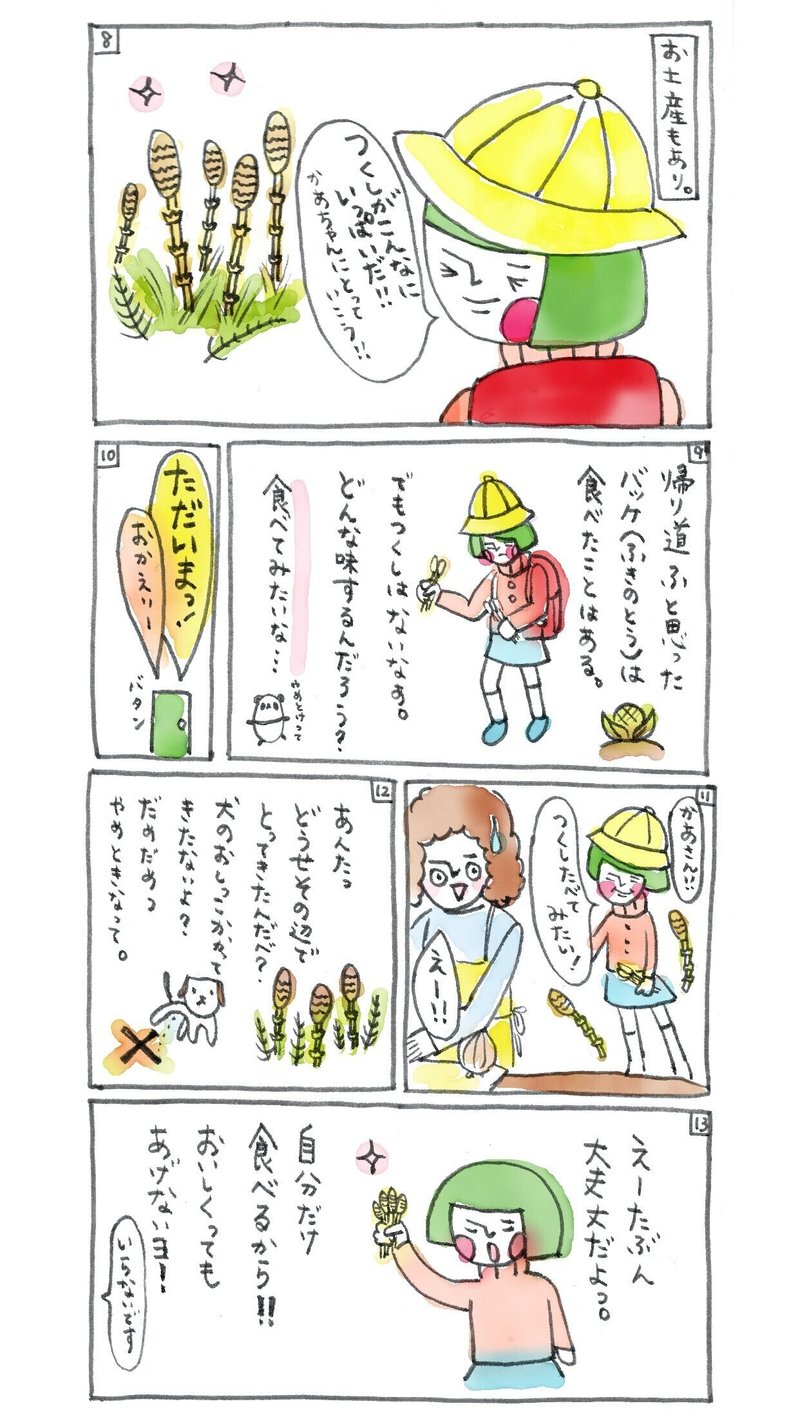 8
お土産もあり。
つくしがこんなに
いっぱいだ!!
かあちゃんにとって
いこう!!
9
帰り道ふと思った
バッケ(ふきのとう)は
食べたことはある。
でもつくしはないなあ。
どんな味するんだろう?
食べてみたいな…
やめとけって
10
ただいまっ!
おかえりー
バタン
11
かあさん!!
つくしたべて
みたい!
えー!!
12
あんたっ
どうせその辺で
とってきたんだべ?
犬のおしっこかかって
きたないよ?
だめだめっ
やめときなって。
13
えーたぶん
大丈夫だよっ。
自分だけ
食べるから!!
おいしくっても
あげないヨー!
いらないです